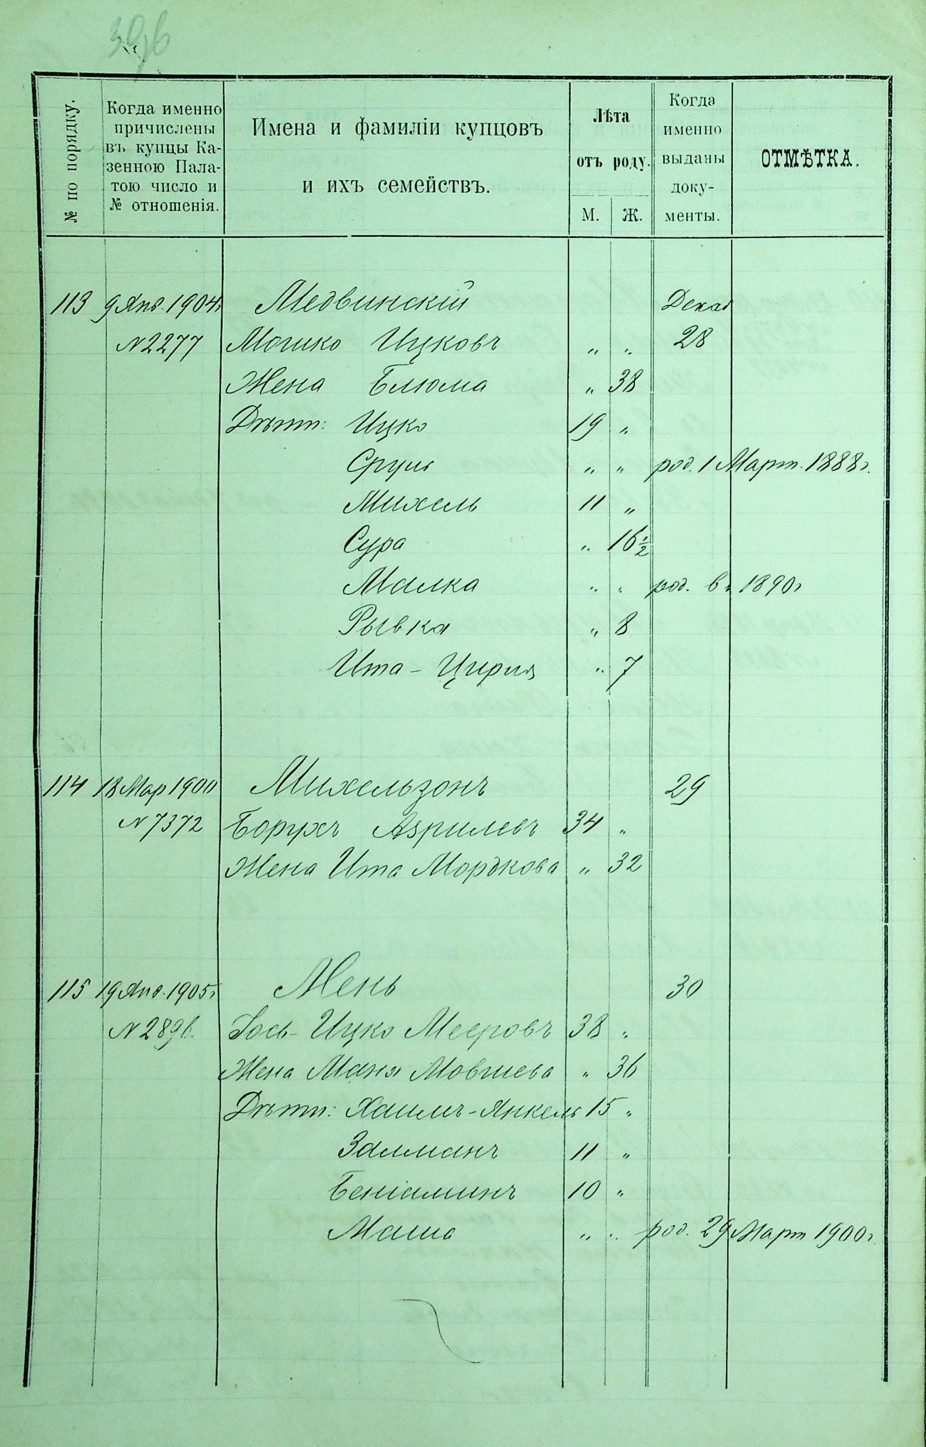 396
№ по порядку.
Когда именно
причислены
въ купцы Ка-
зенною Пала-
тою число и
№ отношенія.
Имена и фамиліи купцовъ
и ихъ семействъ.
Лѣта
отъ роду.
М. Ж.
Когда
именно
выданы
доку-
менты.
ОТМѢТКА.
113 9 Янв. 1904 г Медвинскій Декаб
N 2277 Мошко Ицковъ „ „ 28
Жена Блюма „ 38
Дѣти: Ицко 19 „
Сруль „ „ род. 1 Март. 1888 г.
Михель 11 „
Сура „ 16 1/2
Малка „ „ род. въ 1890 г
Рывка „ 8
Ита-Цирля „ 7
114 18 Мар 1900 Михельзонъ 29
N 7372 Борухъ Азрилевъ 34 „
Жена Ита Моръкова „ 32
115 19 Янв. 1905 г Мень 30
N 2896. Іось-Ицко Мееровъ 38 „
Жена Маня Мовшева „ 36
Дѣти: Хаимъ-Янкель 15 „
Залманъ 11 „
Беніаминъ 10 „
Маша „ „ род. 29 Март 1900 г.